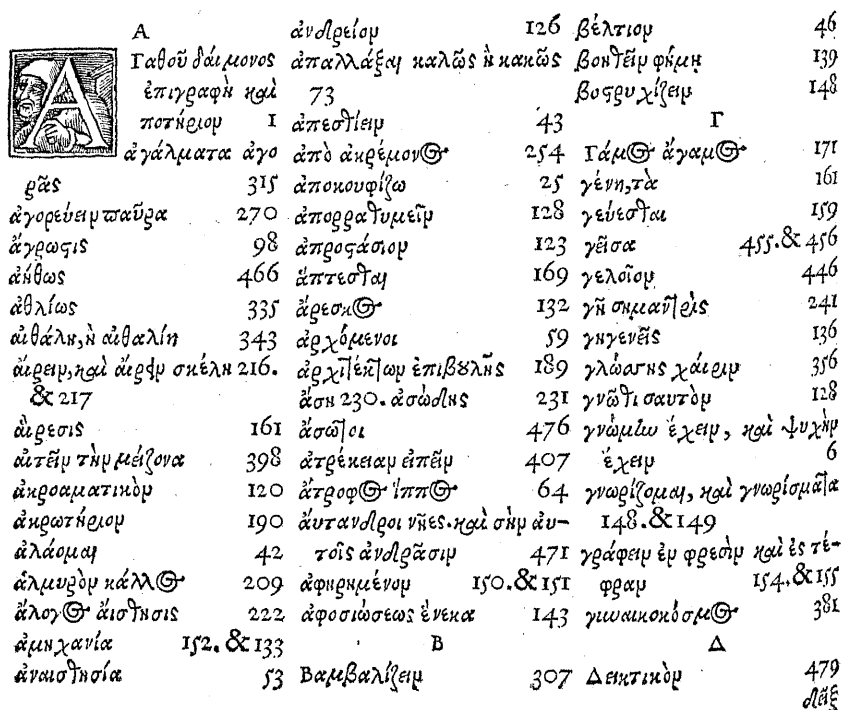 Α
ΑΓαθοῦ δαίμονος
ἐπιγραφὴ καὶ
ποτήριον 1
ἀγάλματα ἀγο
ρᾶς 315
ἀγορεύειν παῦρα 270
ἄγρωστις 98
ἀήθως 466
ἀθλίως 335
αἰθάλη, ἢ αἰθαλίη 343
αἴρειν, καὶ αἴρειν σκέλη 216.
& 217
αἵρεσις 161
αἰτεῖν τὴν μείζονα 398
ἀκροαματικὸν 120
ἀκρωτήριον 190
ἀλάομαι 42
ἁλμυρὸν κάλλος 209
ἄλογος αἴσθησις 222
ἀμηχανία 152. & 133
ἀναισθησία 53
ἀνδρείον 126
ἀπαλλάξαι καλῶς ἢ κακῶς
73
ἀπεσθίειν 43
ἀπὸ ἀκρέμονος 254
ἀποκουφίζω 25
ἀπορραθυμεῖν 128
ἀπροστάσιον 123
ἅπτεσθαι 169
ἄρεσκος 132
ἀρχόμενοι 59
ἀρχιτέκτων ἐπιβουλῆς 189
ἄση 230. ἀσώδης 231
ἄσωτοι 476
ἀτρέκειαν εἰπεῖν 407
ἄτροφος ἵππος 64
ἄυτανδροι νῆες. καὶ σὴν ἀυ-
τοῖς ἀνδράσιν 471
ἀφῃρημένον 150. & 151
ἀφοσιώσεως ἕνεκα 143
Β
Βαμβαλίζειν 307
βέλτιον 46
βοηθεῖν φήμῃ 139
βοστρυχίζειν 148
Γ
Γάμος ἄγαμος 171
γένη, τὰ 161
γεύεσθαι 159
γεῖσα 455. & 456
γελοῖον 446
γῆ σημαντρὶς 241
γηγενεῖς 136
γλώσσης χάριν 356
γνῶθι σαυτὸν 128
γνώμην ἔχειν, καὶ ψυχὴν
ἔχειν 6
γνωρίζομαι, καὶ γνωρίσματα
148. & 149
γράφειν ἐν φρεσὶν καὶ ἐς τέ-
φραν 154. & 155
γυναικοκόσμος 381
Δ
Δεικτικὸν 479
δεῖξ